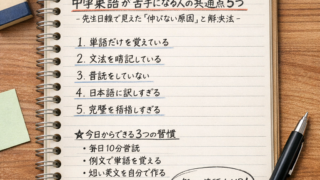 中学英語が苦手になる人の共通点5つ
- 先生目線で見えた「伸びない原因」と解決法 -
1. 単語だけを覚えている
2. 文法を暗記している
3. 音読をしていない
4. 日本語に訳しすぎる
5. 完璧を
★今日からできる3つの習慣
• 毎日10分音読
• 例文で単語を覚える
• 短い英文を自分で作る